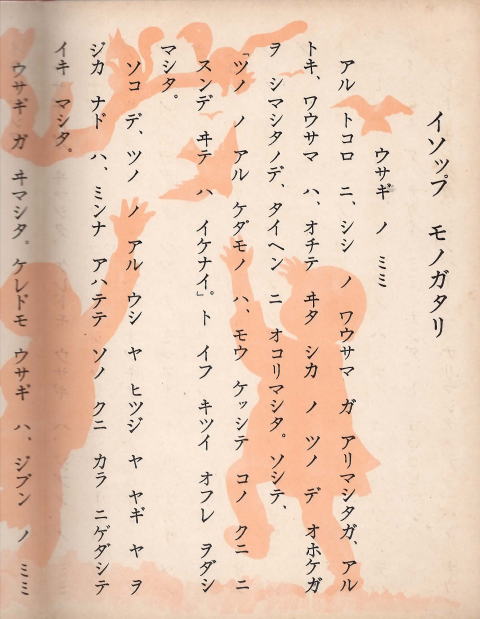 イソップ モノガタリ
ウサギ ノ ミミ
アル トコロ ニ、シシ ノ ワウサマ ガ アリマシタガ、アル
トキ、ワウサマ ハ、オチテ ヰタ シカ ノ ツノ デ オホケガ
ヲ シマシタノデ、タイヘン ニ オコリマシタ。ソシテ、
「ツノ ノ アル ケダモノ ハ、モウ ケッシテ コノ クニ ニ
スンデ ヰテ ハ イケナイ。」ト イフ キツイ オフレ ヲダシ
マシタ。
ソコ デ、ツノ ノ アル ウシ ヤ ヒツジ ヤ ヤギ ヤ ヲ
ジカ ナド ハ、ミンナ アハテテ ソノ クニ カラ ニゲダシテ
イキ マシタ。
ウサギ ガ ヰマシタ。ケレドモ ウサギ ハ、ジブン ノ ミミ